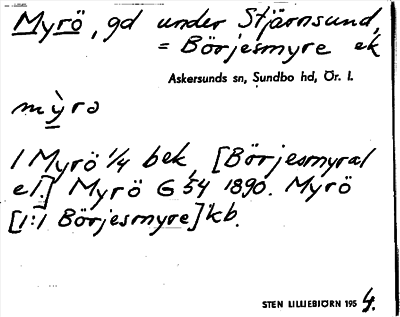 Myrö, gd under Stjärnsund,
= Börjesmyre ek
Askersunds sn, Sundbo hd, Ör. l.
mỳrə
1 Myrö 1/4 bek, [Börjesmyral
el.] Myrö G 54 1890. Myrö
[1:1 Börjesmyre] kb.
STEN LILLIEBJÖRN 195 4.